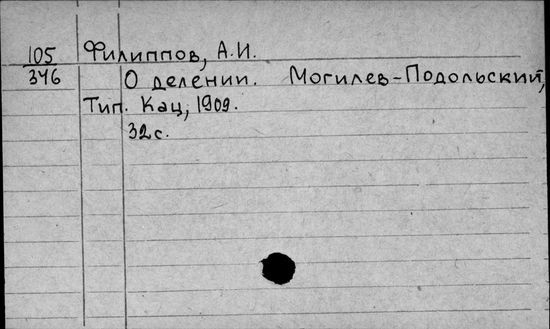 105 Филиппов, А.И.
346 О делении. Могилев-Подольский,
Тип. Кац, 1909.
32 с.